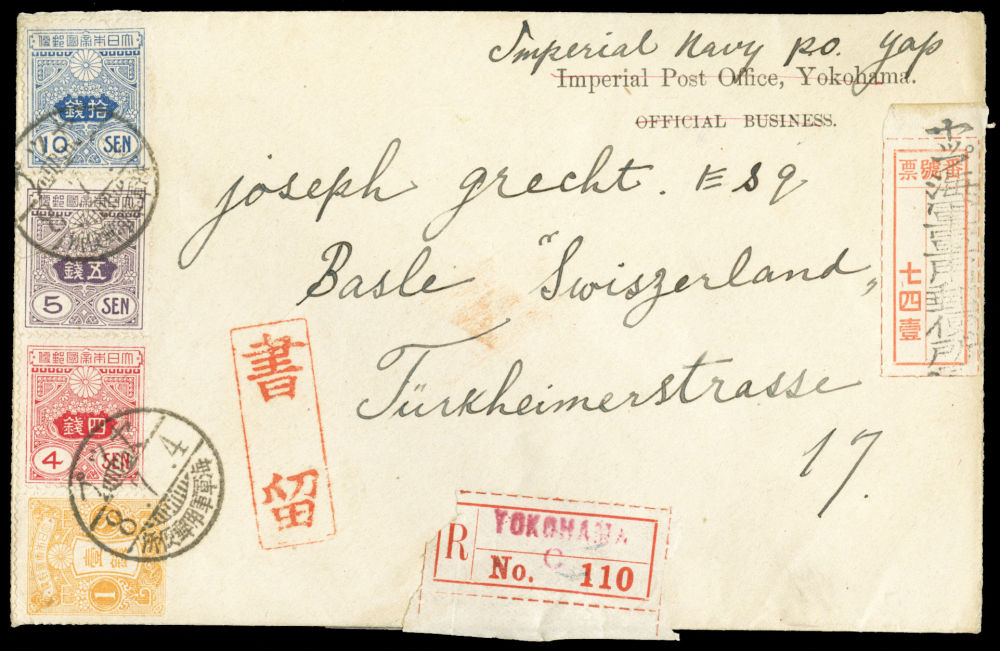 Imperial Navy P.O. Yap
Imperial Post Office, Yokohama.
OFFICIAL BUSINESS.
joseph grecht. Esq
Basle "Swiszerland„
Türkheimerstrasse
17.
大日本帝國郵便
拾錢
10 SEN
大日本帝國郵便
五錢
5 SEN
大日本帝國郵便
四錢
4 SEN
壹
1
8.
4
海軍軍用郵便所
書留
番號票
七四壹
R
YOKOHAMA
C
No. 110